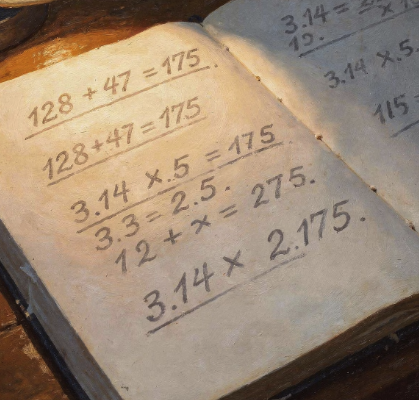 128 + 47 = 175.
128+47 = 175
3.14 x.5 = 175
3.3 = 2.5.
12 + x = 275.
3.14 x 2.175.
3.14 =
19.
3.14 x.5.
115 =